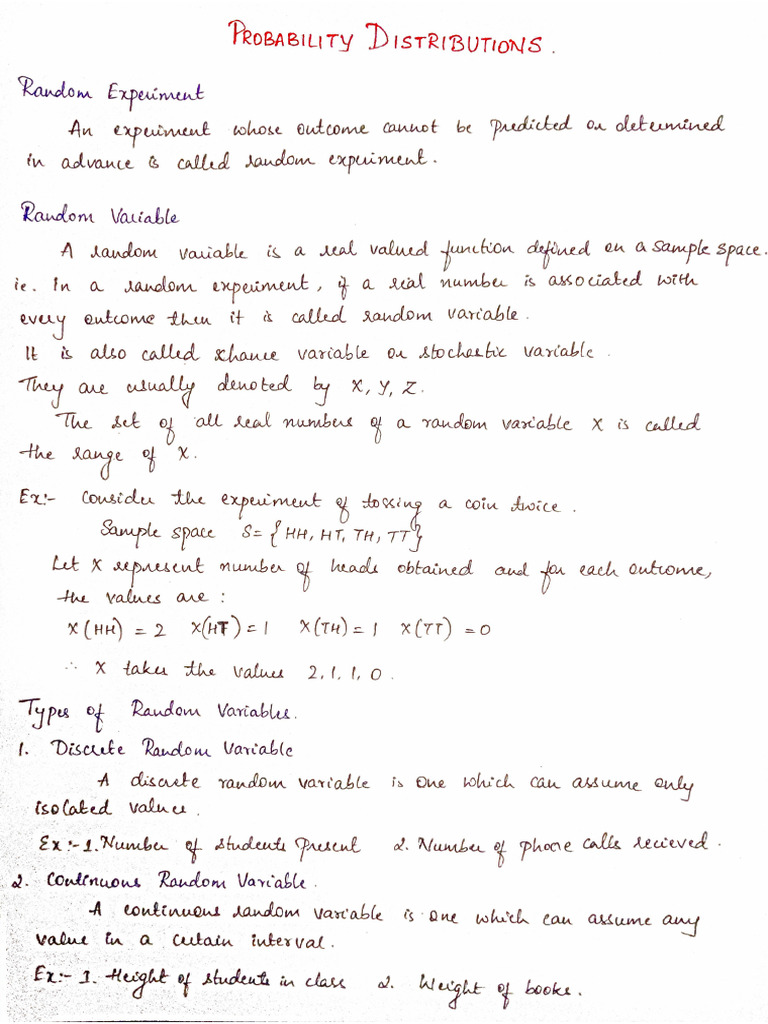 PROBABILITY DISTRIBUTIONS.
Random Experiment
An experiment whose outcome cannot be predicted or determined
in advance is called random experiment.
Random Variable
A random variable is a real valued function defined on a sample space.
ie. In a random experiment, if a real number is associated with
every outcome then it is called random variable.
It is also called chance variable or stochastic variable.
They are usually denoted by X, Y, Z.
The set of all real numbers of a random variable X is called
the range of X.
Ex:- Consider the experiment of tossing a coin twice.
Sample space S= {HH, HT, TH, TT}
Let X represent number of heads obtained and for each outcome,
the values are :
X(HH) = 2 X(HT) = 1 X(TH) = 1 X(TT) = 0
∴ X takes the values 2, 1, 1, 0.
Types of Random Variables.
1. Discrete Random Variable
A discrete random variable is one which can assume only
isolated values.
Ex:- 1. Number of students present 2. Number of phone calls recieved.
2. Continuous Random Variable.
A continuous random variable is one which can assume any
value in a certain interval.
Ex:- 1. Height of students in class 2. Weight of books.